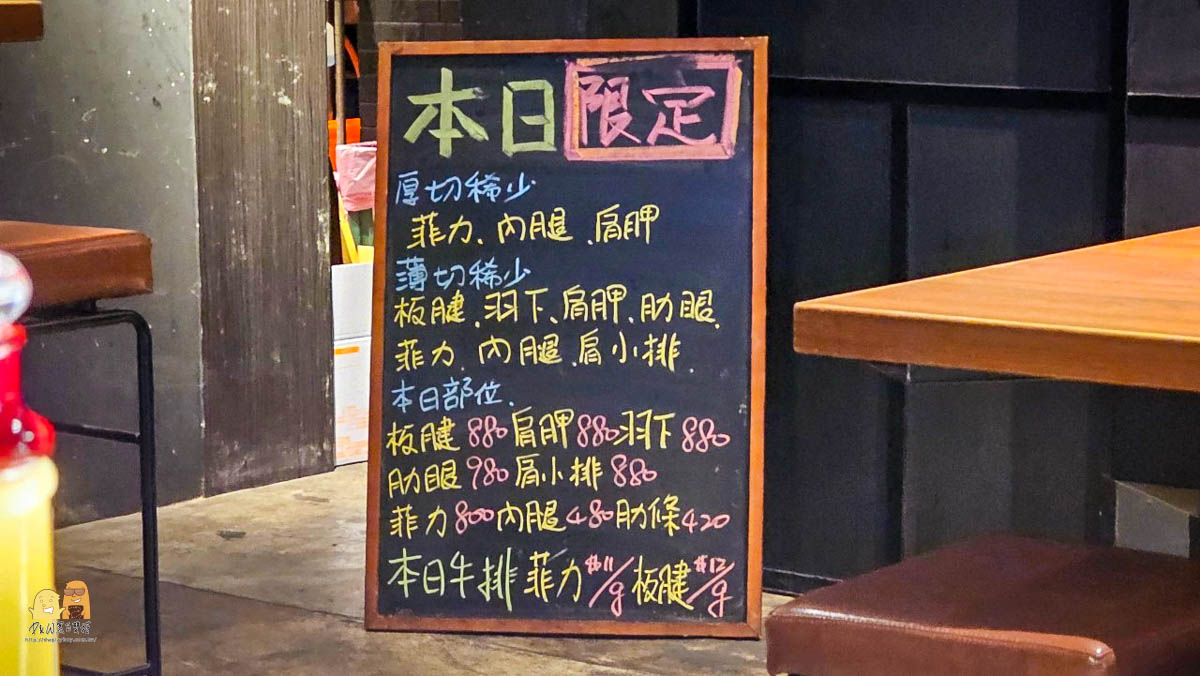 本日限定
厚切稀少
菲力、內腿、肩胛
薄切稀少
板腱、羽下、肩胛、肋眼、
菲力、內腿、肩小排.
本日部位.
板腱880肩胛880羽下880
肋眼980肩小排880
菲力800內腿480肋條420
本日牛排菲力$11/g板腱$12/g